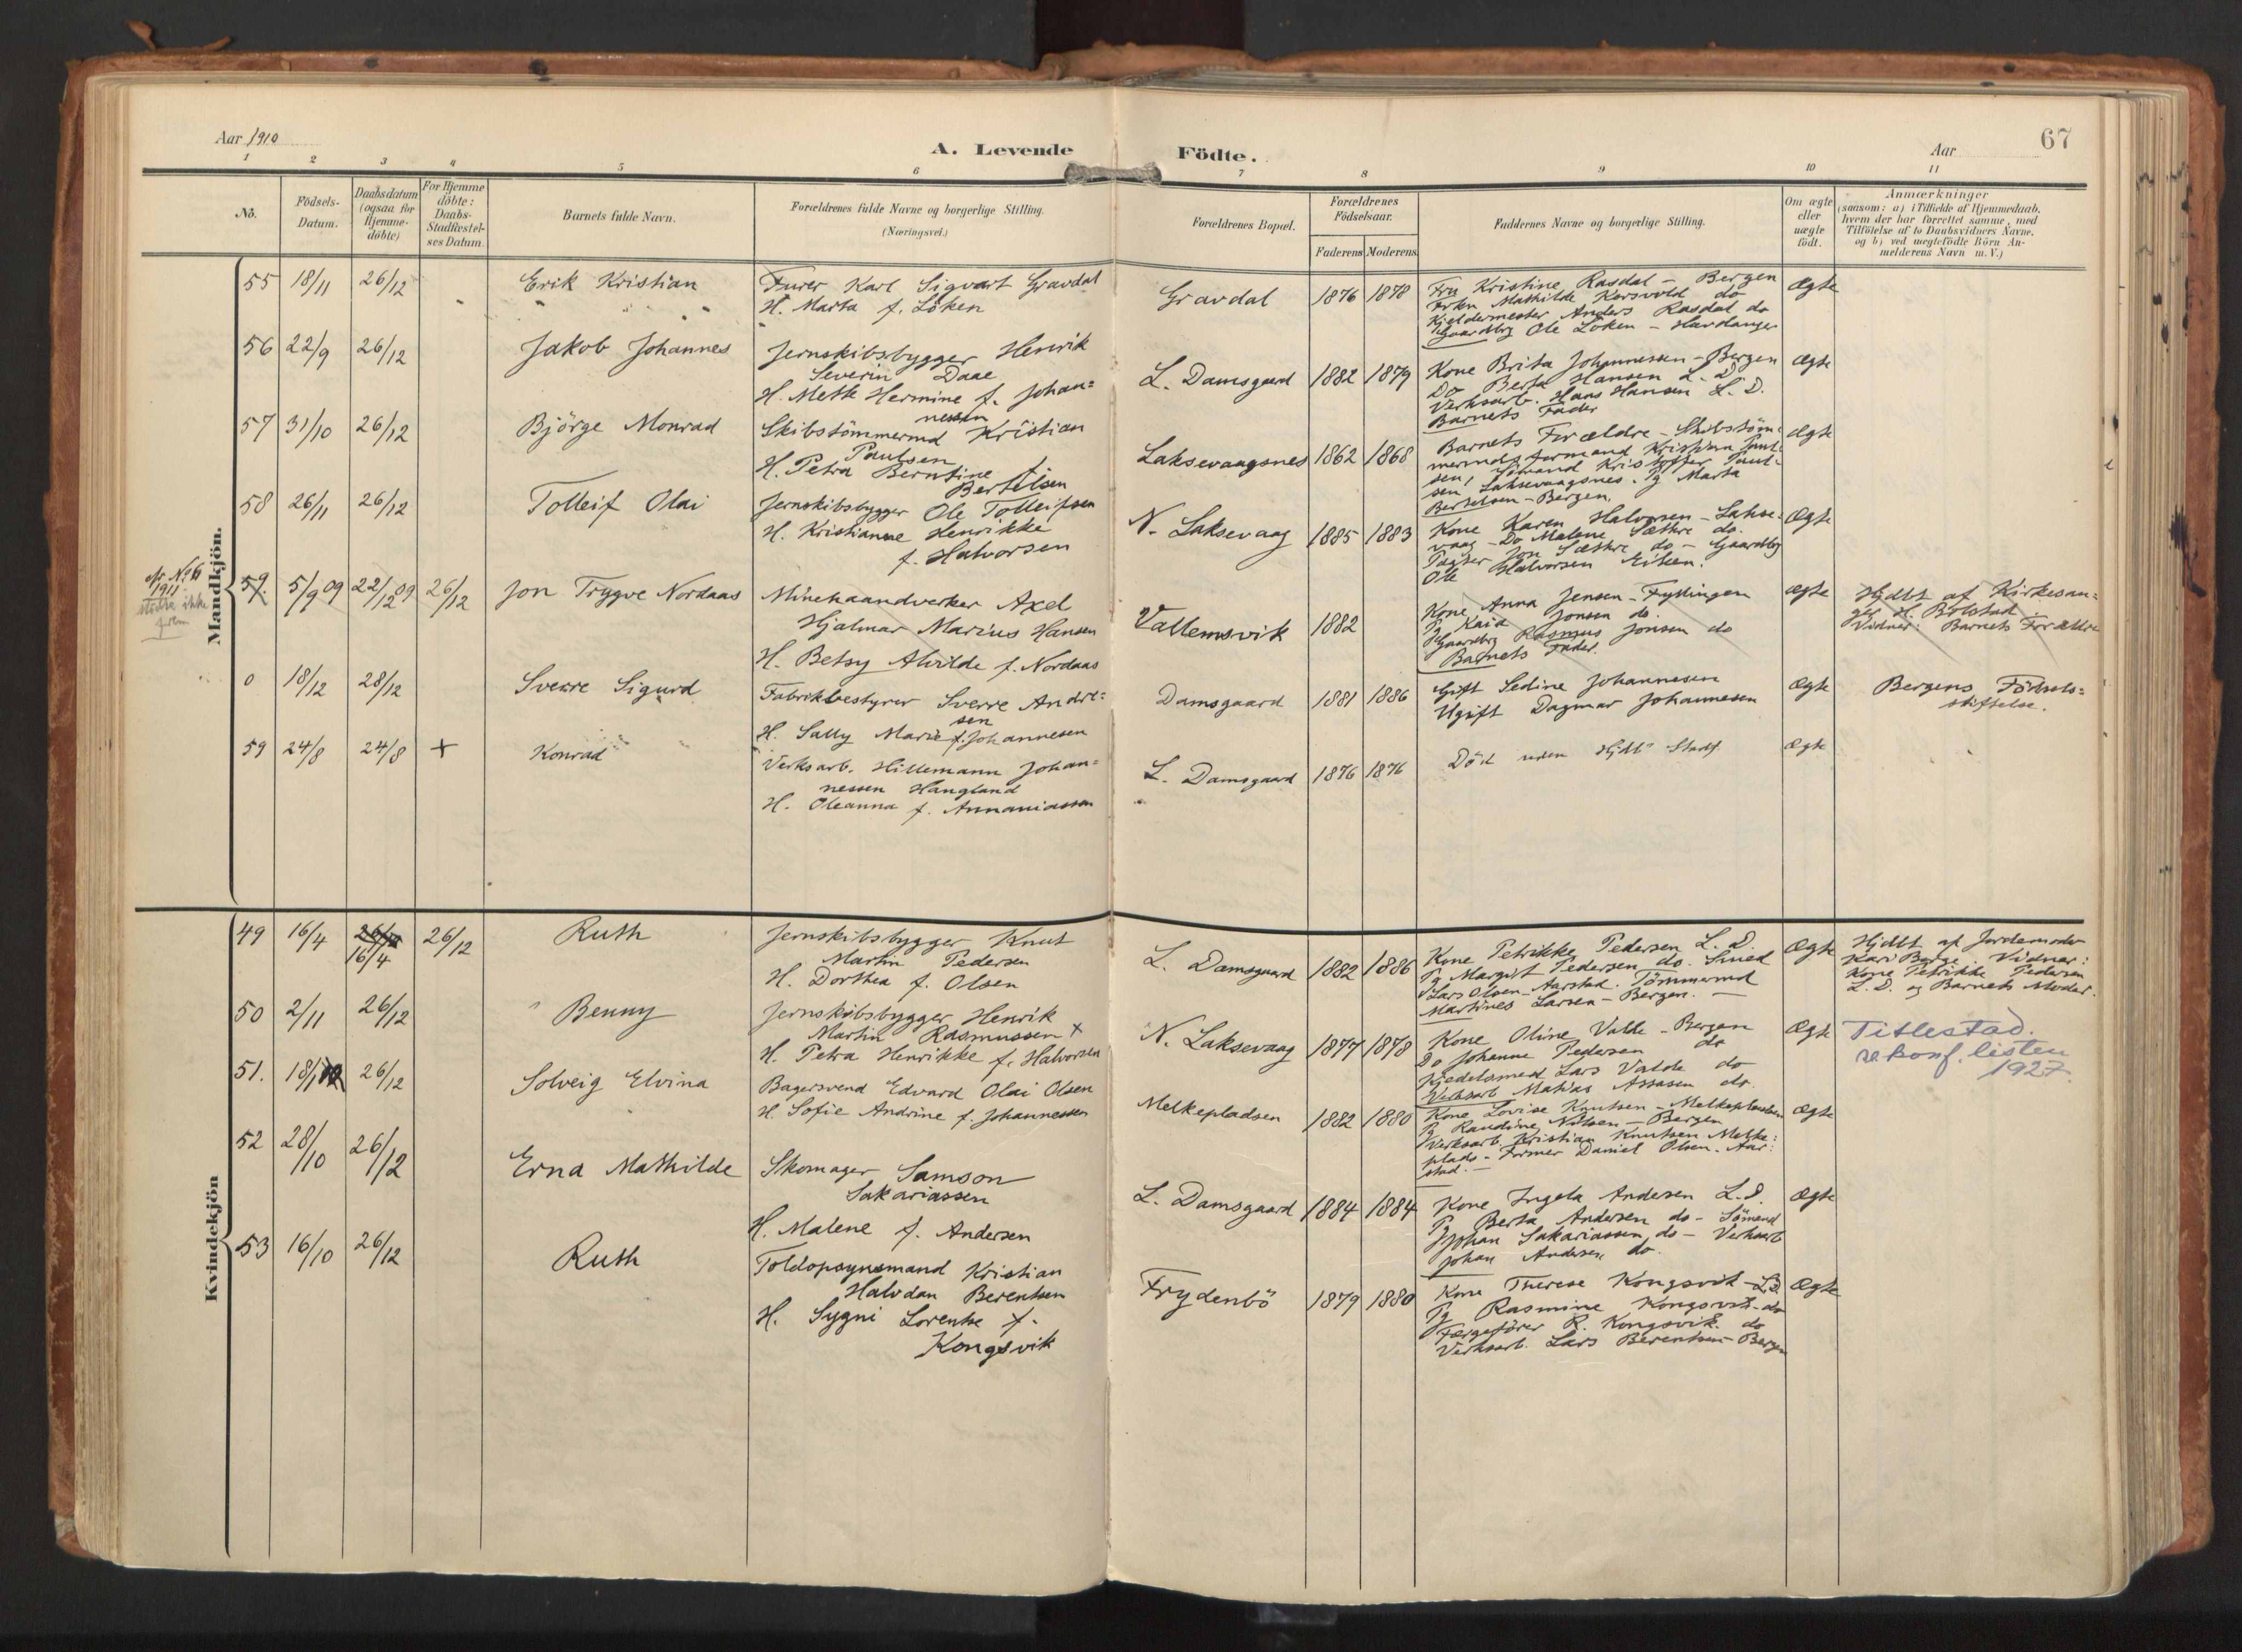 Aar 1910
A. Levende
Födte.
Aar
67
1 2 3 4 5 6 7 8 9 10 11
No.
Födsels-
Datum.
Daabsdatum
(ogsaa for
Hjemme-
döbte)
For Hjemme
döbte:
Daabs-
Stadfæstel-
ses Datum.
Barnets fulde Navn.
Forældrenes fulde Navne og borgerlige Stilling.
(Næringsvei.)
Forældrenes Bopæl.
Forældrenes
Födselsaar.
Faderens Moderens
Faddernes Navne og borgerlige Stilling.
Om ægte
eller
uægte
födt.
Anmærkninger
(saasom: a) i Tilfælde af Hjemmedaab,
hvem der har forrettet samme, med
Tilföielse af to Daabsvidners Navne.
og b) ved uægtefödte Börn An-
melderens Navn m.V.)
Mandkjön.
55 18/11 26/12
Erik Kristian
Furer Karl Sigvart Gravdal
H. Marta f. Löken
Gravdal 1876 1878
Fru Kristine Rasdal - Bergen
Frkn Mathilde Korsvold do
Kjeldermester Anders Rasdal do
Gaardbrg Ole Löken - Hardanger
Ægte
56 22/9 26/12
Jakob Johannes
Jernskibsbygger Henrik
Severin Daae
H. Mette Hermine f. Johan=
nessen
L. Damsgaard 1882 1879
Kone Brita Johannessen - Bergen
Do Berta Hansen L. D.
Verksarb. Hans Hansen L. D.
Barnets Fader
Ægte
57 31/10 26/12
Björge Monrad
Skibstömmermd Kristian
Paulsen
H. Petra Berntine f.
Bertelsen
Laksevaagsnes 1862 1868
Barnets Forældre - Skibstöm-
mermdsformand Kristian Paul-
sen, Sömand Kristoffer Paul-
sen Laksevaagsnes. Pg Marta
Bertelsen - Bergen.
Ægte
58 26/11 26/12
Tolleif Olai
Jernskibsbygger Ole Tolleifsen
H. Kristianne Henrikke
f. Halvorsen
N. Laksevaag 1885 1883
Kone Karen Halvorsen - Lakse-
vaag - Do Malene Sæthre do.
Jon Sæthre do - Gaardbrg
Ole Halvorsen
Ægte
1911
59. 5/9 09 22/12 09 26/12
Jon Trygve Nordaas
Minehaandverker Axel
Hjalmar Marius Hansen
H. Betsy Alvilde f. Nordaas
Vallemsvik 1882
Kone Anna Jensen - Fyllingen
Pg Kaia Jonsen do.
Gaardbrg Rasmus Jonsen do
Barnets Fader.
Ægte
Hjdbt af Kirkesan=
ger H. Bolstad.
Vidner: Barnets Forældre
0 18/12 28/12
Sverre Sigurd
Fabrikbestyrer Sverre Andre=
sen
H. Sally Marie f. Johannesen
Damsgaard 1881 1886
Gift Sedine Johannesen
Ugift Dagmar Johannesen
Ægte
Bergens Födsels=
stiftelse.
59 24/8 24/8 +
Konrad
Verksarb. Hillemann Johan=
nessen Haugland
H. Oleanna f. Annaniassen
L. Damsgaard 1876 1876
Död uden Stadf.
Ægte
Kvindekjön
49 16/4 16/4 26/12
Ruth
Jernskibsbygger Knut
Martin Pedersen
H. Dorthea f. Olsen
L. Damsgaard 1882 1886
Kone Petrikke Pedersen L. D.
Pg Margit Pedersen do. Smed
Lars Olsen - Aarstad. Tömmermd
Martines Larsen - Bergen. —
Ægte
Hjdbt af Jordemoder
Kari Berge. Vidner:
Kone Petrikke Pedersen
L. D. og Barnets Moder.
50 2/11 26/12
Benny
Jernskibsbygger Henrik
Martin Rasmussen x
H. Petra Henrikke f. Halvorsen
N. Laksevaag 1877 1878
Kone Oline Valde - Bergen
Do Johanne Pedersen do
Kjedelsmed Lars Valde do
Verksarb. Matias Assasen do.
Ægte
Titlestad.
se konf. listen
1927.
51. 26/12
Solveig Elvina
Bagersvend Edvard Olai Olsen
H. Sofie Andrine f. Johannessen
Melkepladsen 1882 1880
Kone Lovise Knutsen - Melkepladsen
Pg Randine Nilsen - Bergen
Verksarb. Kristian Knutsen Melke-
plads - Former Daniel Olsen - Aar-
stad. —
Ægte
52 28/10 26/12
Erna Mathilde
Skomager Samson
Sakariassen
H. Malene f. Andersen
L. Damsgaard 1884 1884
Kone Ingela Andersen L. D.
Pg Berta Andersen do - Sömand
Johan Sakariassen do - Verksarb
Johan Andersen do.
Ægte
53 16/10 26/12
Ruth
Toldopsynsmand Kristian
Halvdan Berentsen
H. Sygni Lorentse f.
Kongsvik
Frydenbö 1879 1880
Kone Therese Kongsvik - L.D
Pg Rasmine Kongsvik - do
Færgeförer R. Kongsvik. do
Verksarb. Lars Berentsen - Bergen
Ægte